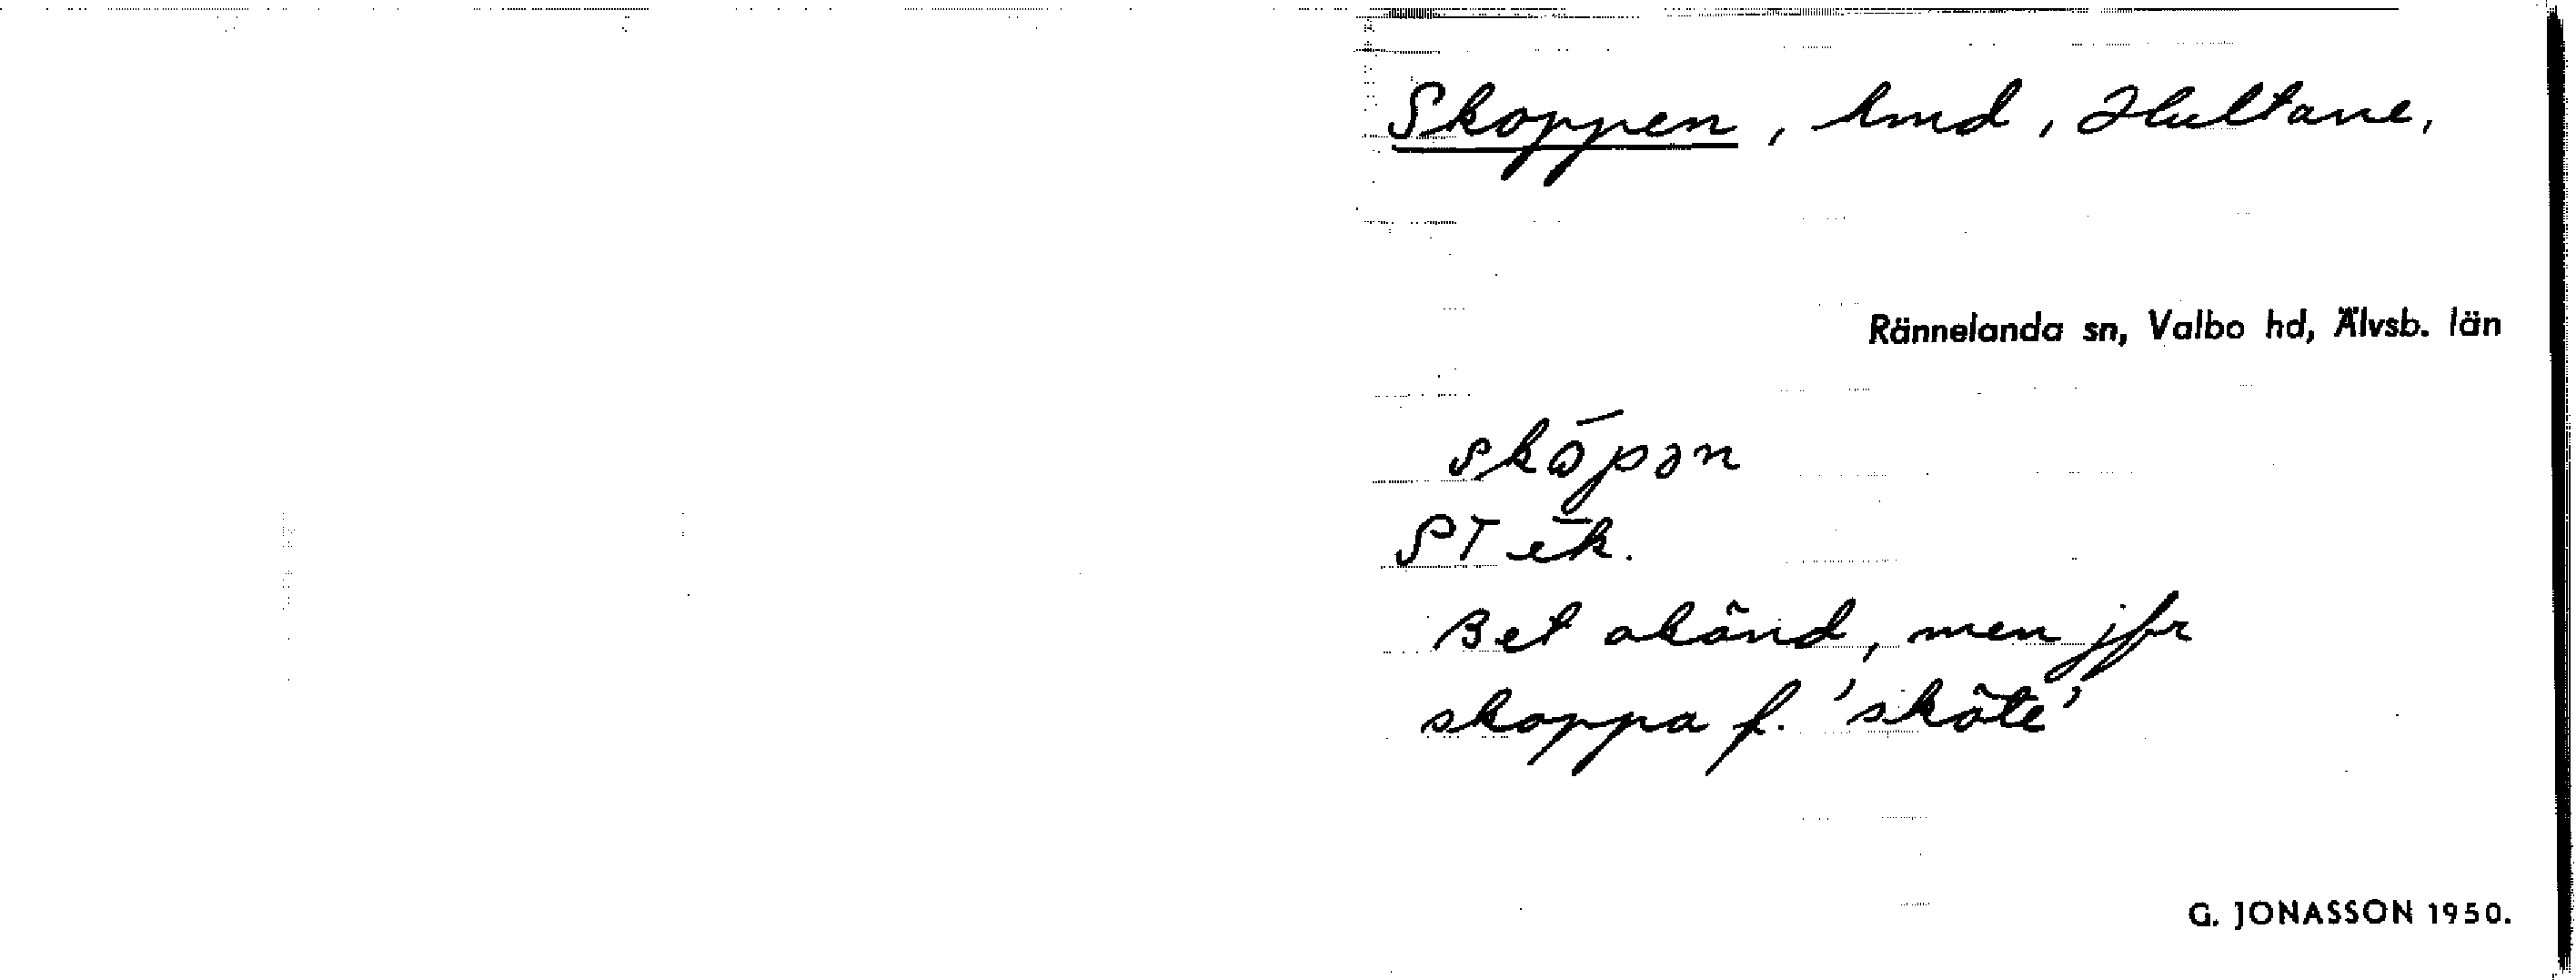 Skoppen, hmd, Hultane,
Rännelanda sn, Valbo hd, Älvsb. län
skǫ́pən
ST ek.
Bet okänd, men jfr
skoppa f. 'sköte'
G. JONASSON 1950.